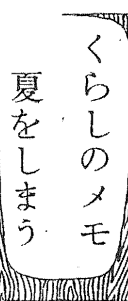 くらしのメモ
夏をしまう